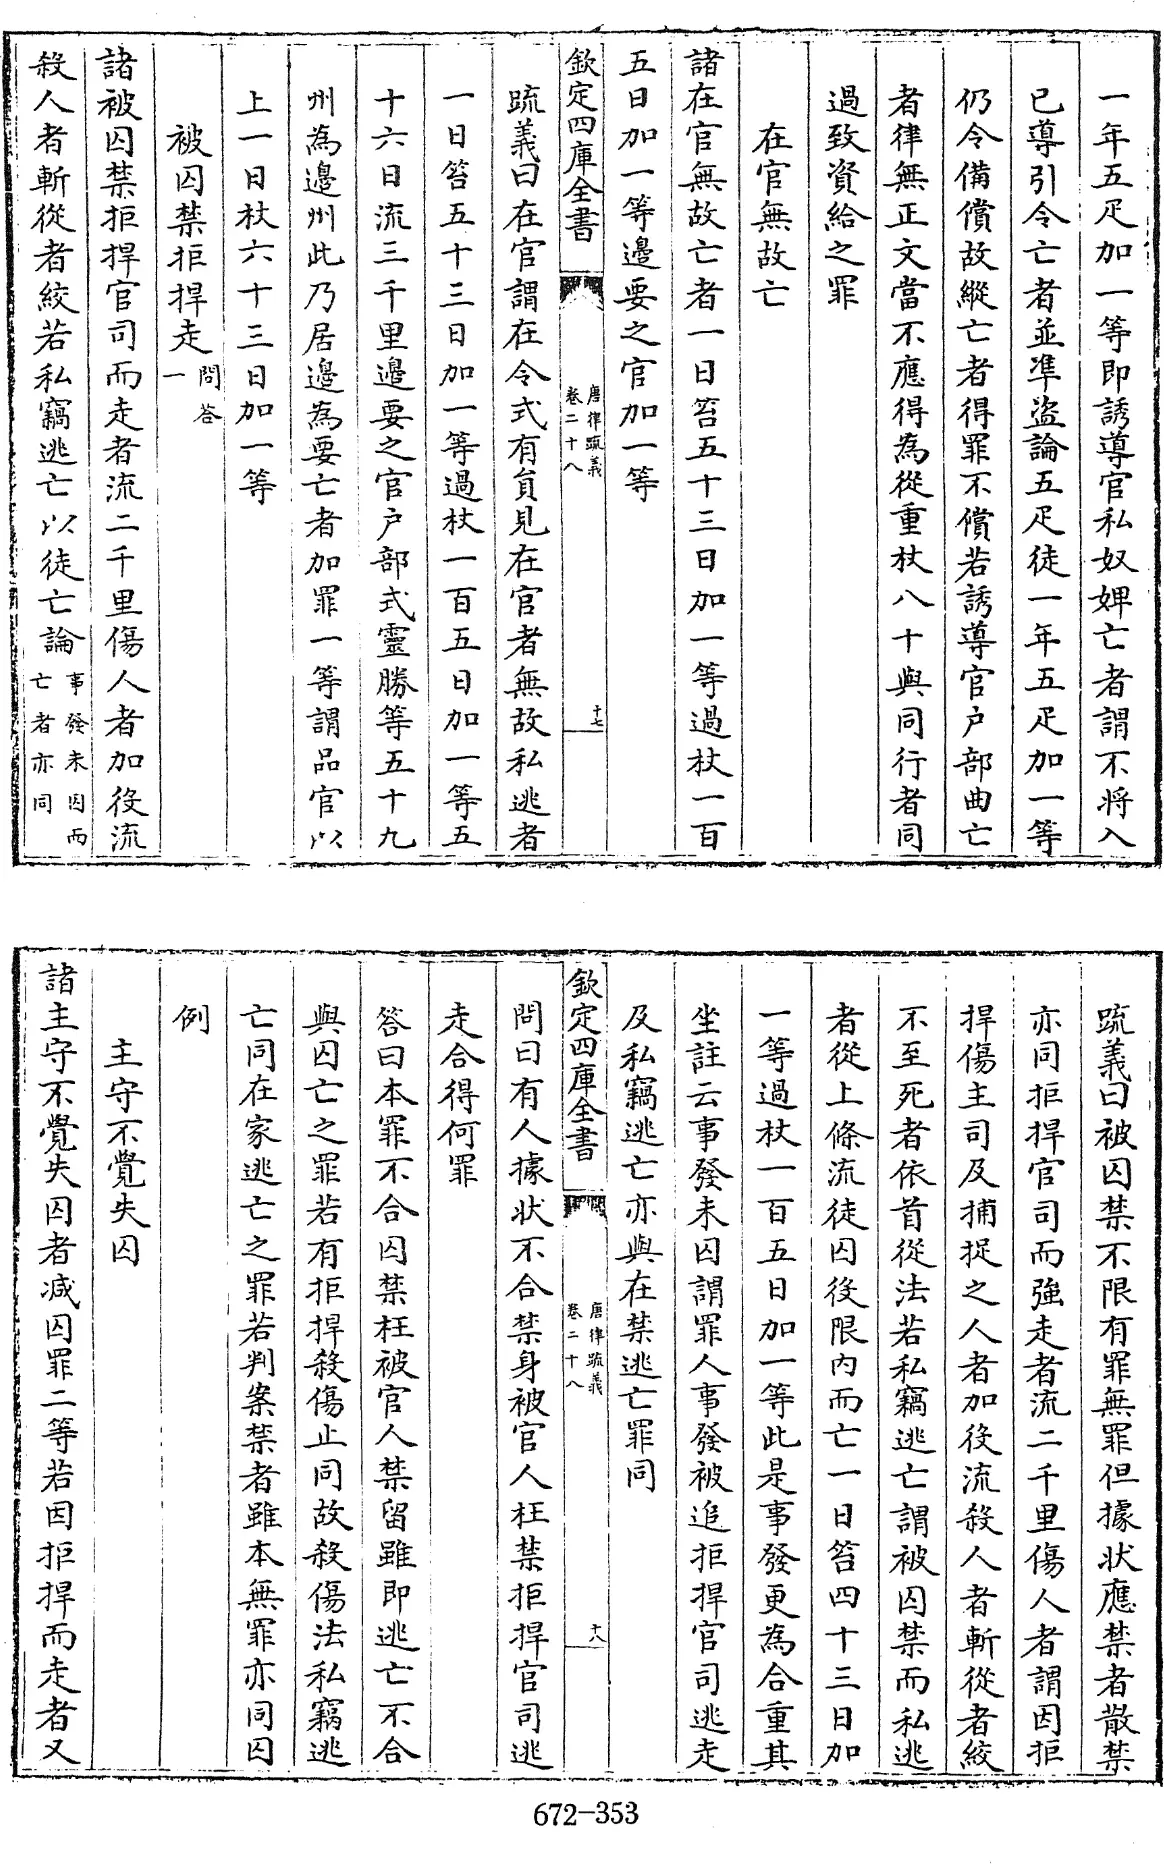 一年五疋加一等即誘導官私奴婢亡者謂不將入
已導引令亡者並準盜論五疋徒一年五疋加一等
仍令備償故縱亡者得罪不償若誘導官户部曲亡
者律無正文當不應得為從重杖八十與同行者同
過致資給之罪
在官無故亡
諸在官無故亡者一日笞五十三日加一等過杖一百
五日加一等邊要之官加一等
欽定四庫全書
唐律疏義
卷二十八
十七
疏義曰在官謂在令式有員見在官者無故私逃者
一日笞五十三日加一等過杖一百五日加一等五
十六日流三千里邊要之官户部式靈勝等五十九
州為邊州此乃居邊為要亡者加罪一等謂品官以
上一日杖六十三日加一等
被囚禁拒捍走問答一
諸被囚禁拒捍官司而走者流二千里傷人者加役流
殺人者斬從者絞若私竊逃亡以徒亡論事發未囚而亡者亦同
疏義曰被囚禁不限有罪無罪但據狀應禁者散禁
亦同拒捍官司而強走者流二千里傷人者謂因拒
捍傷主司及捕捉之人者加役流殺人者斬從者絞
不至死者依首從法若私竊逃亡謂被囚禁而私逃
者從上條流徒囚役限内而亡一日笞四十三日加
一等過杖一百五日加一等此是事發更為合重其
坐註云事發未囚謂罪人事發被追拒捍官司逃走
及私竊逃亡亦與在禁逃亡罪同
欽定四庫全書
唐律疏義
卷二十八
十八
問曰有人據狀不合禁身被官人枉禁拒捍官司逃
走合得何罪
答曰本罪不合囚禁枉被官人禁留雖即逃亡不合
與囚亡之罪若有拒捍殺傷止同故殺傷法私竊逃
亡同在家逃亡之罪若判案禁者雖本無罪亦同囚
例
主守不覺失囚
諸主守不覺失囚者減囚罪二等若因拒捍而走者又
672-353